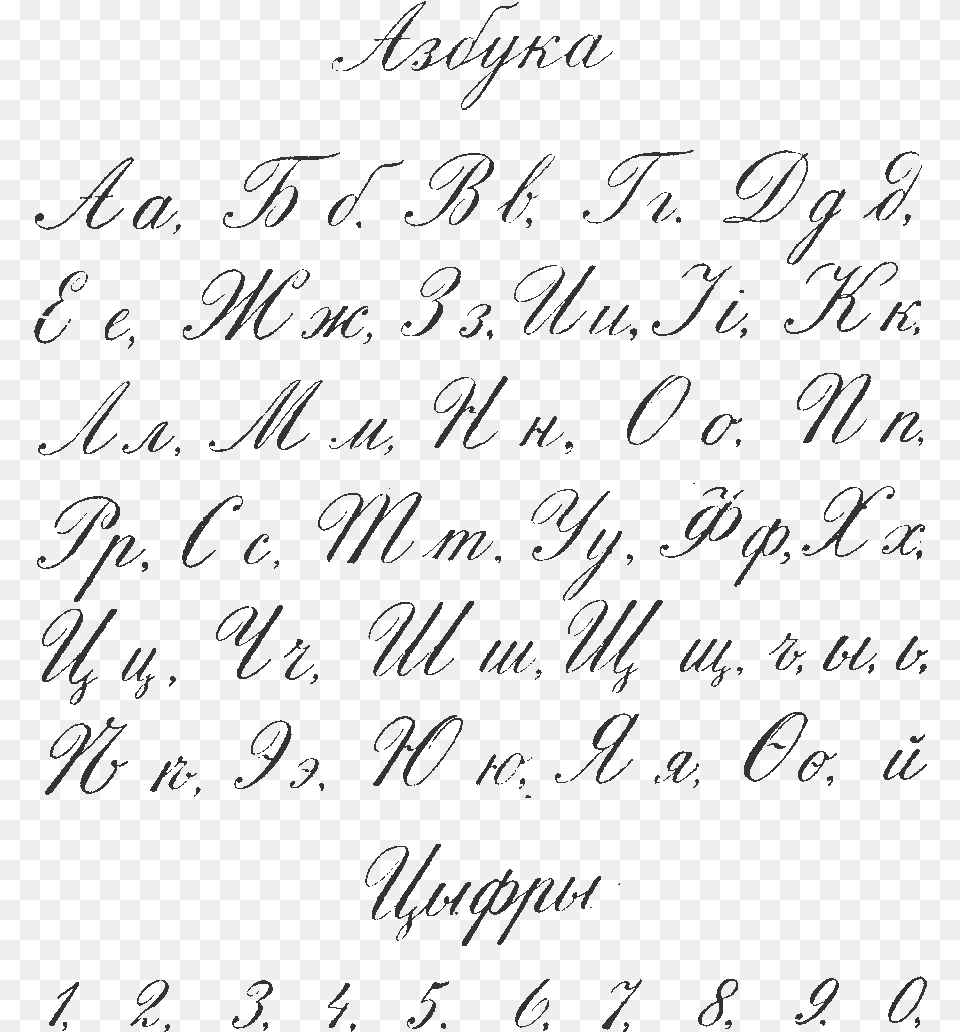 Азбука
Аа, Бб. Вв, Гг. Дд д,
Ее, Жж, Зз, Ии, Іі, Кк,
Лл, Мм, Нн, Оо, Пп,
Рр, Сс, Тт, Уу, Фф, Хх,
Цц, Чч, Шш, Щщ, ъ, ы, ь,
Ѣѣ, Ээ, Юю, Яя, Ѳѳ, й
Цыфры
1, 2, 3, 4, 5. 6, 7, 8, 9. 0,